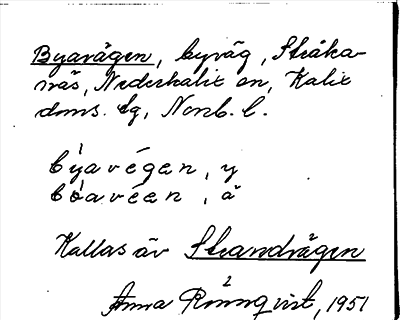 Byavägen, byväg, Stråka-
näs, Nederkalix sn, Kalix
doms. tg, Norrb. l.
býavégen, y
bòavéen, å
Kallas äv Strandvägen
Anna Rönnqvist, 1951